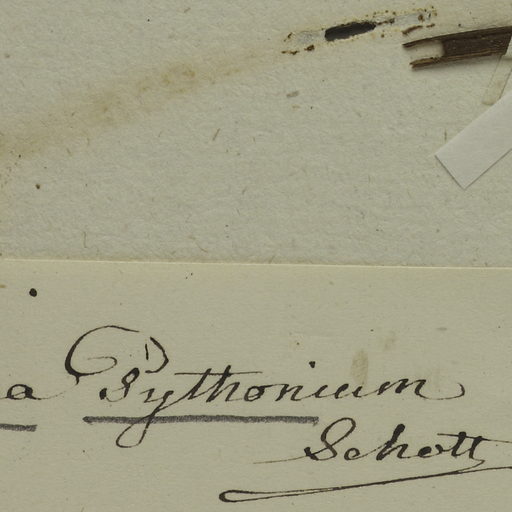 a Pythonium
Schott